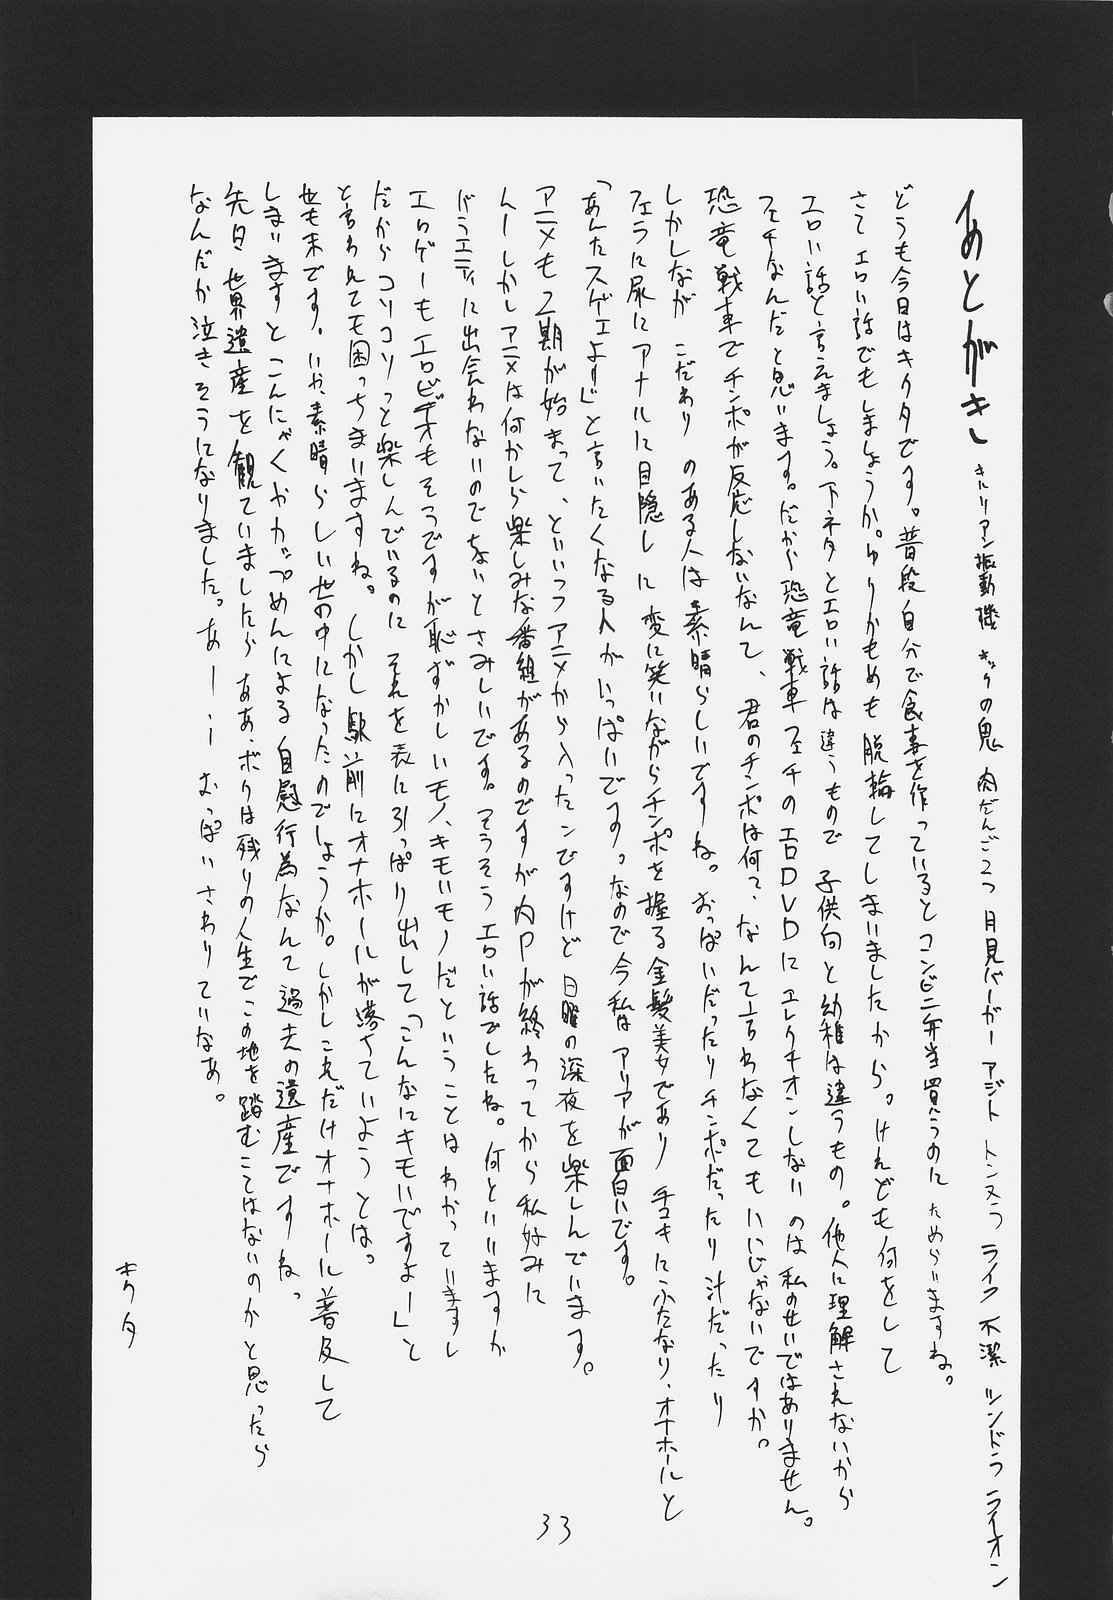 あとがき
キルリアン振動機 キックの鬼 肉だんご2つ 月見バーガー アジト トンヌラ ライク 不潔 シンドラ ライオン
どうも今日はキクタです。普段自分で食事を作っているとコンビニ弁当買うのにためらいますね。
さてエロい話でもしましょうか。ゆりかもめも脱輪してしまいましたから。けれども何をして
エロい話と言えましょう。下ネタとエロい話は違うもので子供向と幼稚は違うもの。他人に理解されないから
フェチなんだと思います。だから恐竜戦車フェチのエロDVDにエレクチオンしないのは私のせいではありません。
恐竜戦車でチンポが反応しないなんて、君のチンポは何て、なんて言わなくてもいいじゃないですか。
しかしながら こだわり のある人は素晴らしいですね。おっぱいだったりチンポだったり汁だったり
フェラに尿にアナルに目隠しに 変に笑いながらチンポを握る金髪美女であり 手コキにふたなり、オナホールと
「あんたスゲェよ!!」と言いたくなる人がいっぱいです。なので今私はアリアが面白いです。
アニメも2期が始まって、といってアニメから入ったンですけど日曜の深夜を楽しんでいます。
んーしかしアニメは何かしら楽しみな番組があるのですが内Pが終わってから私好みに
バラエティに出会わないのでちょいとさみしいです。そうそうエロい話でしたね。何といいますか
エロゲーもエロビデオもそうですが恥ずかしいモノ、キモいモノだということはわかっていますし
だからコソコソっと楽しんでいるのに それを表に引っぱり出して「こんなにキモいですよー」と
と言われても困っちまいますね。しかし駅前にオナホールが落ちていようとは。
世も末です。いや、素晴らしい世の中になったのでしょうか。しかしこれだけオナホールに普及して
しまいますとこんにゃくやカップめんによる自慰行為なんて過去の遺産ですね。
先日世界遺産を観ていましたら ああ、ボクは残りの人生でこの地を踏むことはないのかと思ったら
なんだか泣きそうになりました。あーー おっぱいさわりていなあ。
キクタ
33